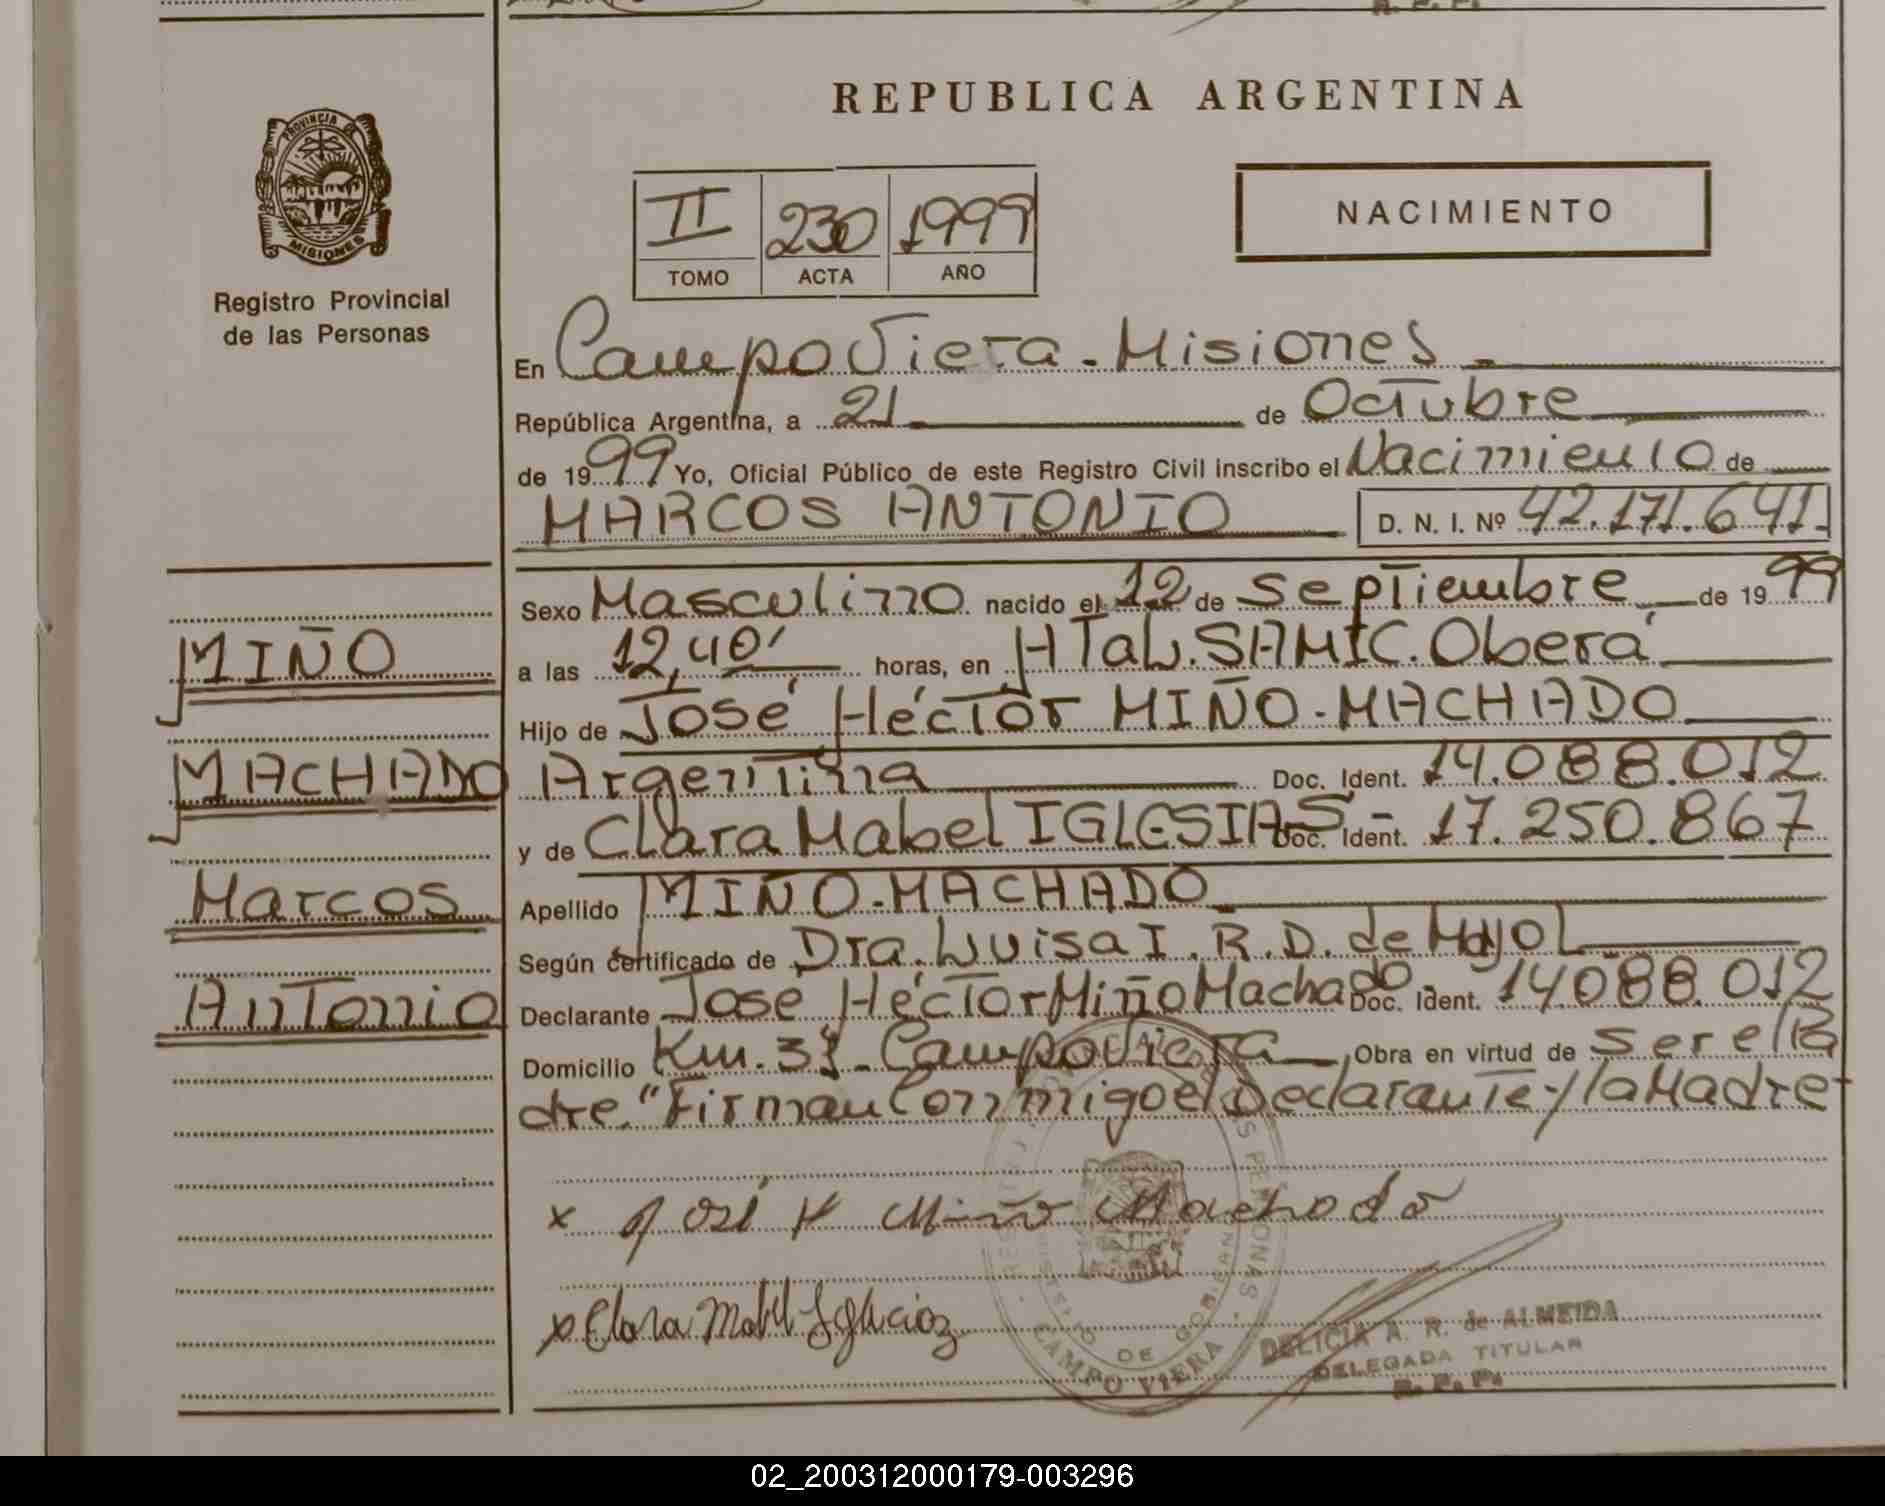 REPUBLICA ARGENTINA
PROVINCIA DE
MISIONES
Registro Provincial
de las Personas
II 230 1999
TOMO ACTA AÑO
NACIMIENTO
En Campo Viera - Misiones
República Argentina, a 21 de Octubre
de 1999 Yo, Oficial Público de este Registro Civil inscribo el Nacimiento de
MARCOS ANTONIO D. N. I. Nº 42.171.641.
Sexo Masculino nacido el 12 de Septiembre de 1999
a las 12,40' horas, en HTal. SAMIC. Oberá
Hijo de José Héctor MIÑO-MACHADO
Argentina Doc. Ident. 14.088.012
y de Clara Mabel IGLESIAS- Doc. Ident. 17.250.867
Apellido MIÑO-MACHADO
Según certificado de Dra. Luisa I. R. D. de Mayol
Declarante José Héctor Miño Machado. Doc. Ident. 14088 012
Domicilio Km. Campo Viera, Obra en virtud de ser el Pa
dre. "Firman Conmigo el Declarante y la Madre
MIÑO
MACHADO
Marcos
Antonio
x José H Miño Machado
x Clara Mabel Iglecias
DE LAS PERSONAS
CAMPO VIERA
DELICIA A. R. de ALMEIDA
DELEGADA TITULAR
R. P. P.
02_200312000179-003296